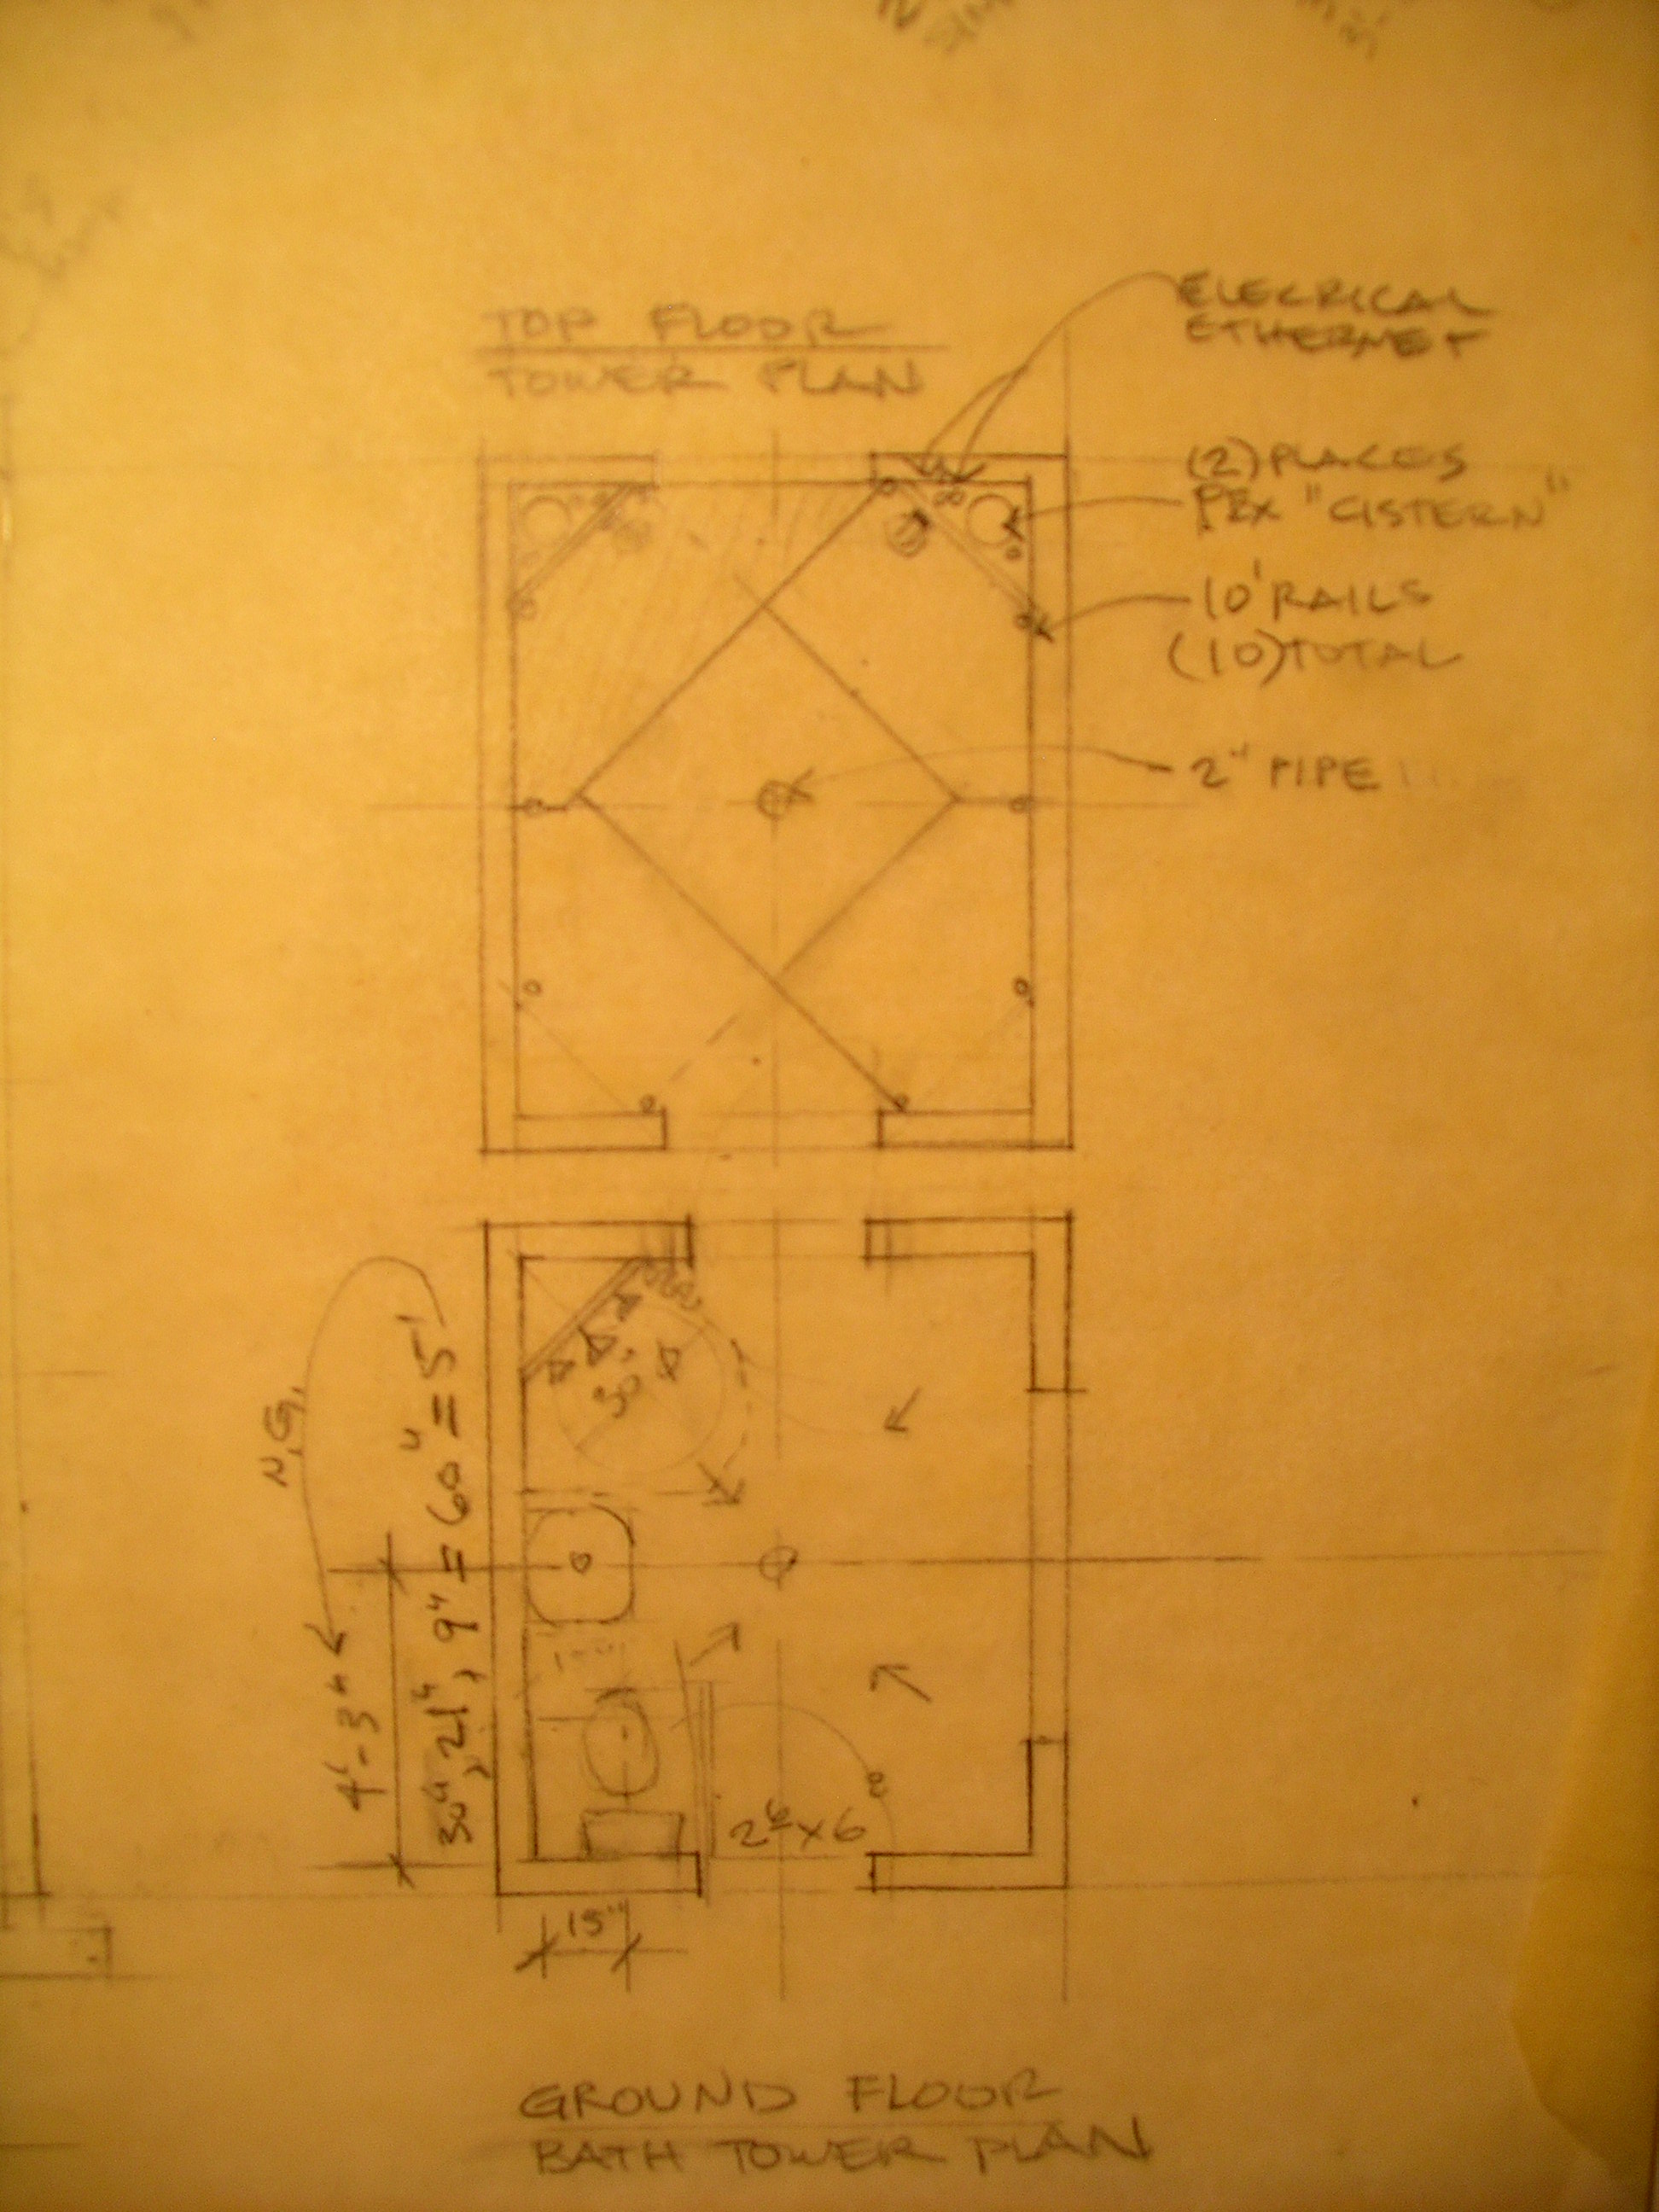 TOP FLOOR
TOWER PLAN
ELECRICAL
ETHERNET
(2) PLACES
PEX "CISTERN"
10' RAILS
(10) TOTAL
2" PIPE
N.G.
4'-3"
30", 21", 9" = 60" = 5'
30"
2⁶ x 6
15"
GROUND FLOOR
BATH TOWER PLAN